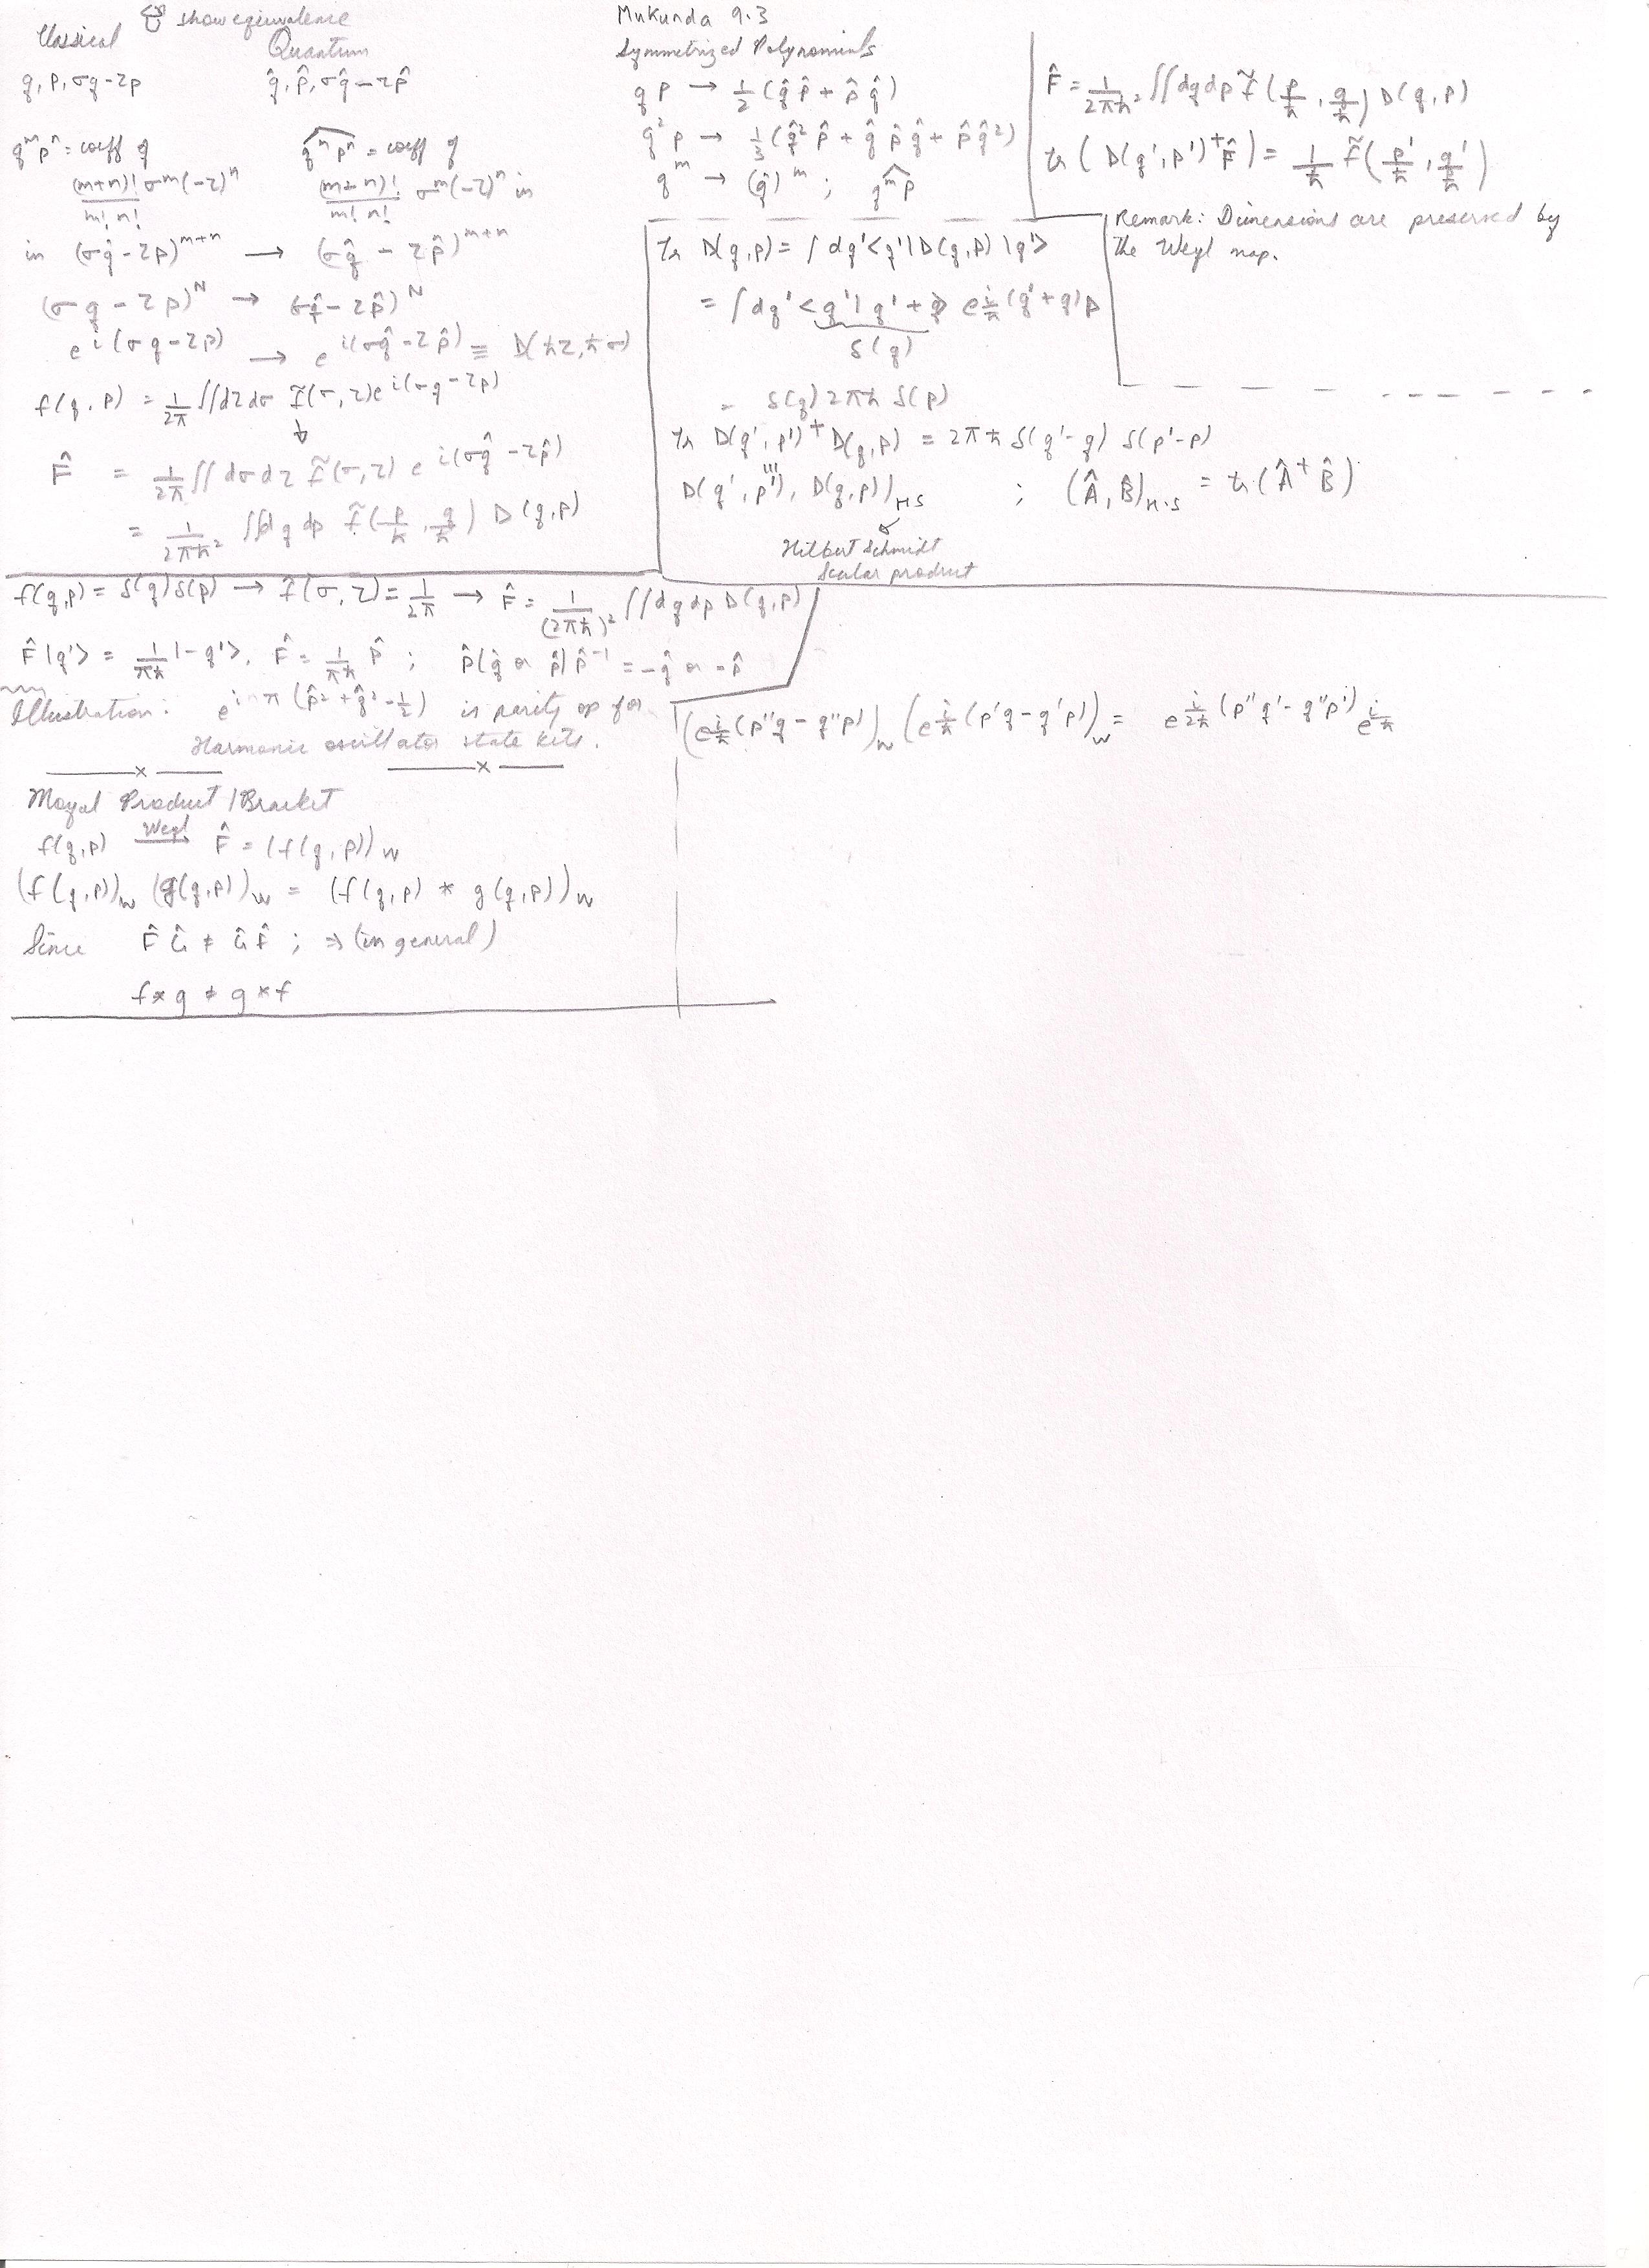 Mukunda 9.3
show equivalence
Classical Quantum
q, p, σq-τp q̂, p̂, σq̂-τp̂
q^m p^n = coeff of \widehat{q^m p^n} = coeff of
(m+n)!/(m! n!) σ^m(-τ)^n (m+n)!/(m! n!) σ^m(-τ)^n in
in (σq-τp)^{m+n} → (σq̂ - τp̂)^{m+n}
(σq - τp)^N → σq̂-τp̂)^N
e^{i(σq-τp)} → e^{i(σq̂-τp̂)} ≡ D(ħτ, ħσ)
f(q, p) = 1/2π ∫∫dτdσ f̃(σ,τ)e^{i(σq-τp)}
↓
F̂ = 1/2π ∫∫dσdτ f̃(σ,τ) e^{i(σq̂-τp̂)}
= 1/2πħ² ∫∫dq dp f̃(p/ħ, q/ħ) D(q,p)
Symmetrized Polynomials
qp → 1/2 (q̂p̂ + p̂q̂)
q²p → 1/3 (q̂²p̂ + q̂p̂q̂ + p̂q̂²)
q^m → (q̂)^m ; \widehat{q^m p}
F̂ = 1/2πħ² ∫∫dqdp f̃(p/ħ, q/ħ) D(q,p)
tr (D(q',p')^†F̂) = 1/ħ f̃(p'/ħ, q'/ħ)
Remark: Dimensions are preserved by
the Weyl map.
Tr D(q,p) = ∫dq'<q'|D(q,p)|q'>
= ∫dq' <q'|q'+q> e^{i/ħ (q'+q)p}
δ(q)
= δ(q) 2πħ δ(p)
Tr D(q',p')^† D(q,p) = 2πħ δ(q'-q) δ(p'-p)
|||
D(q',p'), D(q,p))_{HS} ; (Â, B̂)_{H.S} = tr(Â^† B̂)
Hilbert Schmidt
Scalar product
f(q,p) = δ(q)δ(p) → f̃(σ,τ) = 1/2π → F̂ = 1/(2πħ)² ∫∫dqdp D(q,p)
F̂|q'> = 1/πħ |-q'>, F̂ = 1/πħ P̂ ; P̂(q̂ or p̂)P̂^{-1} = -q̂ or -p̂
Illustration: e^{iπ(p̂²+q̂²-1/2)} is parity op for
Harmonic oscillator state kets.
Moyal Product/Bracket
f(q,p) —Weyl→ F̂ = (f(q,p))_W
(f(q,p))_W (g(q,p))_W = (f(q,p) * g(q,p))_W
Since F̂Ĝ ≠ ĜF̂ ; ⇒ (in general)
f*g ≠ g*f
(e^{i/ħ (p''q - q''p)})_W (e^{i/ħ (p'q-q'p)})_W = e^{i/2ħ (p''q'-q''p')} e^{i/ħ}